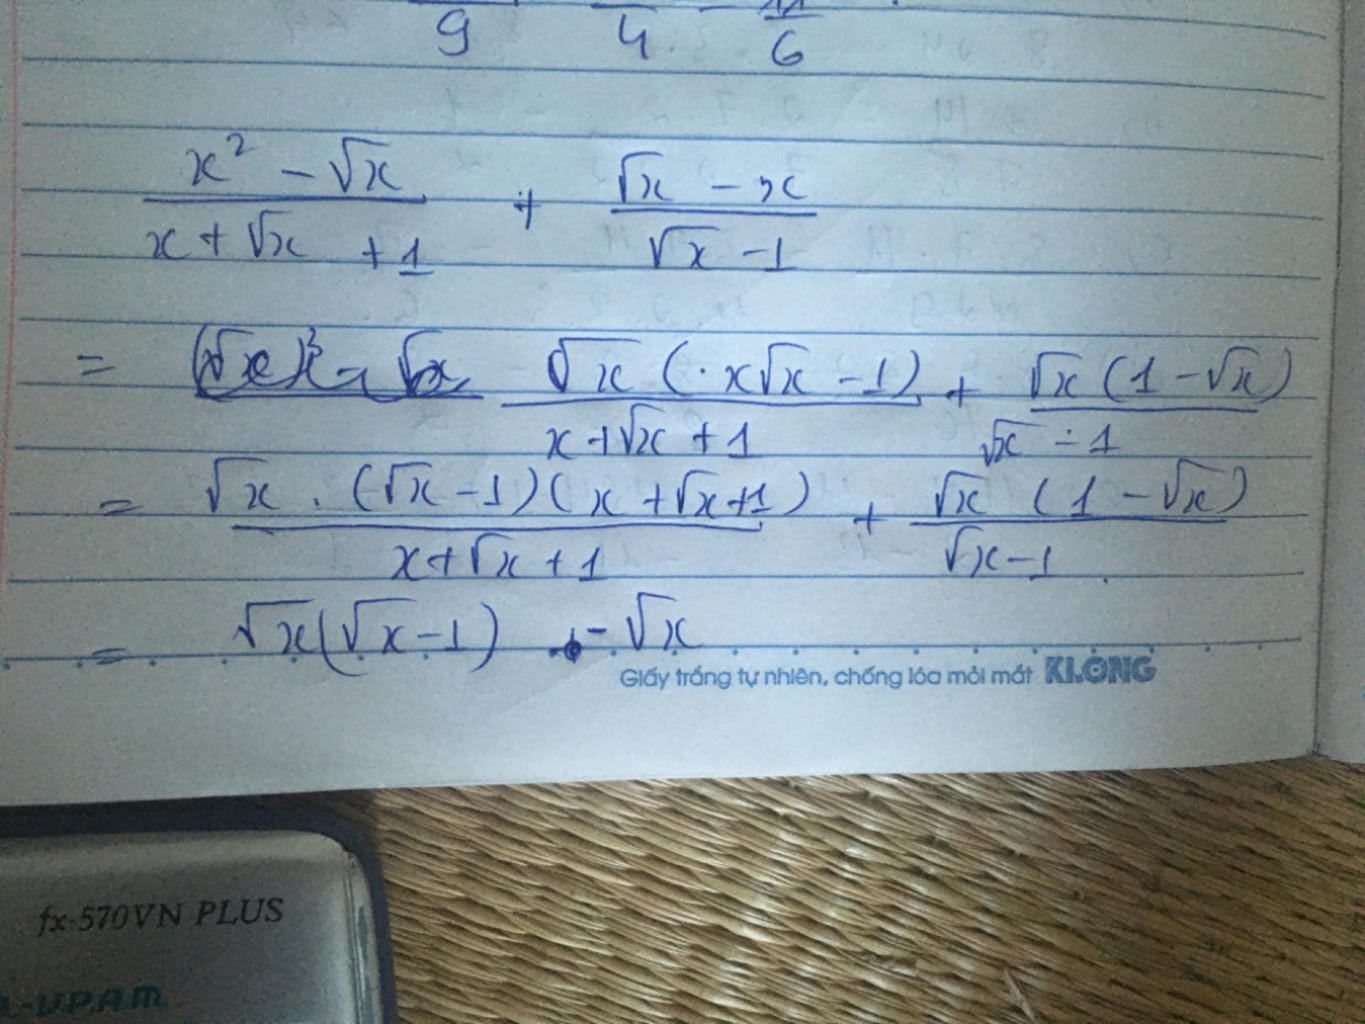 9 4 - 11/6
(x² - √x)/(x + √x + 1) + (√x - x)/(√x - 1)
= (√x(x√x - 1))/(x + √x + 1) + (√x(1 - √x))/(√x - 1)
= (√x . (√x - 1)(x + √x + 1))/(x + √x + 1) + (√x (1 - √x))/(√x - 1)
= √x(√x - 1) - √x
Giấy trắng tự nhiên, chống lóa mỏi mắt KLONG
fx-570VN PLUS
V.P.A.M.